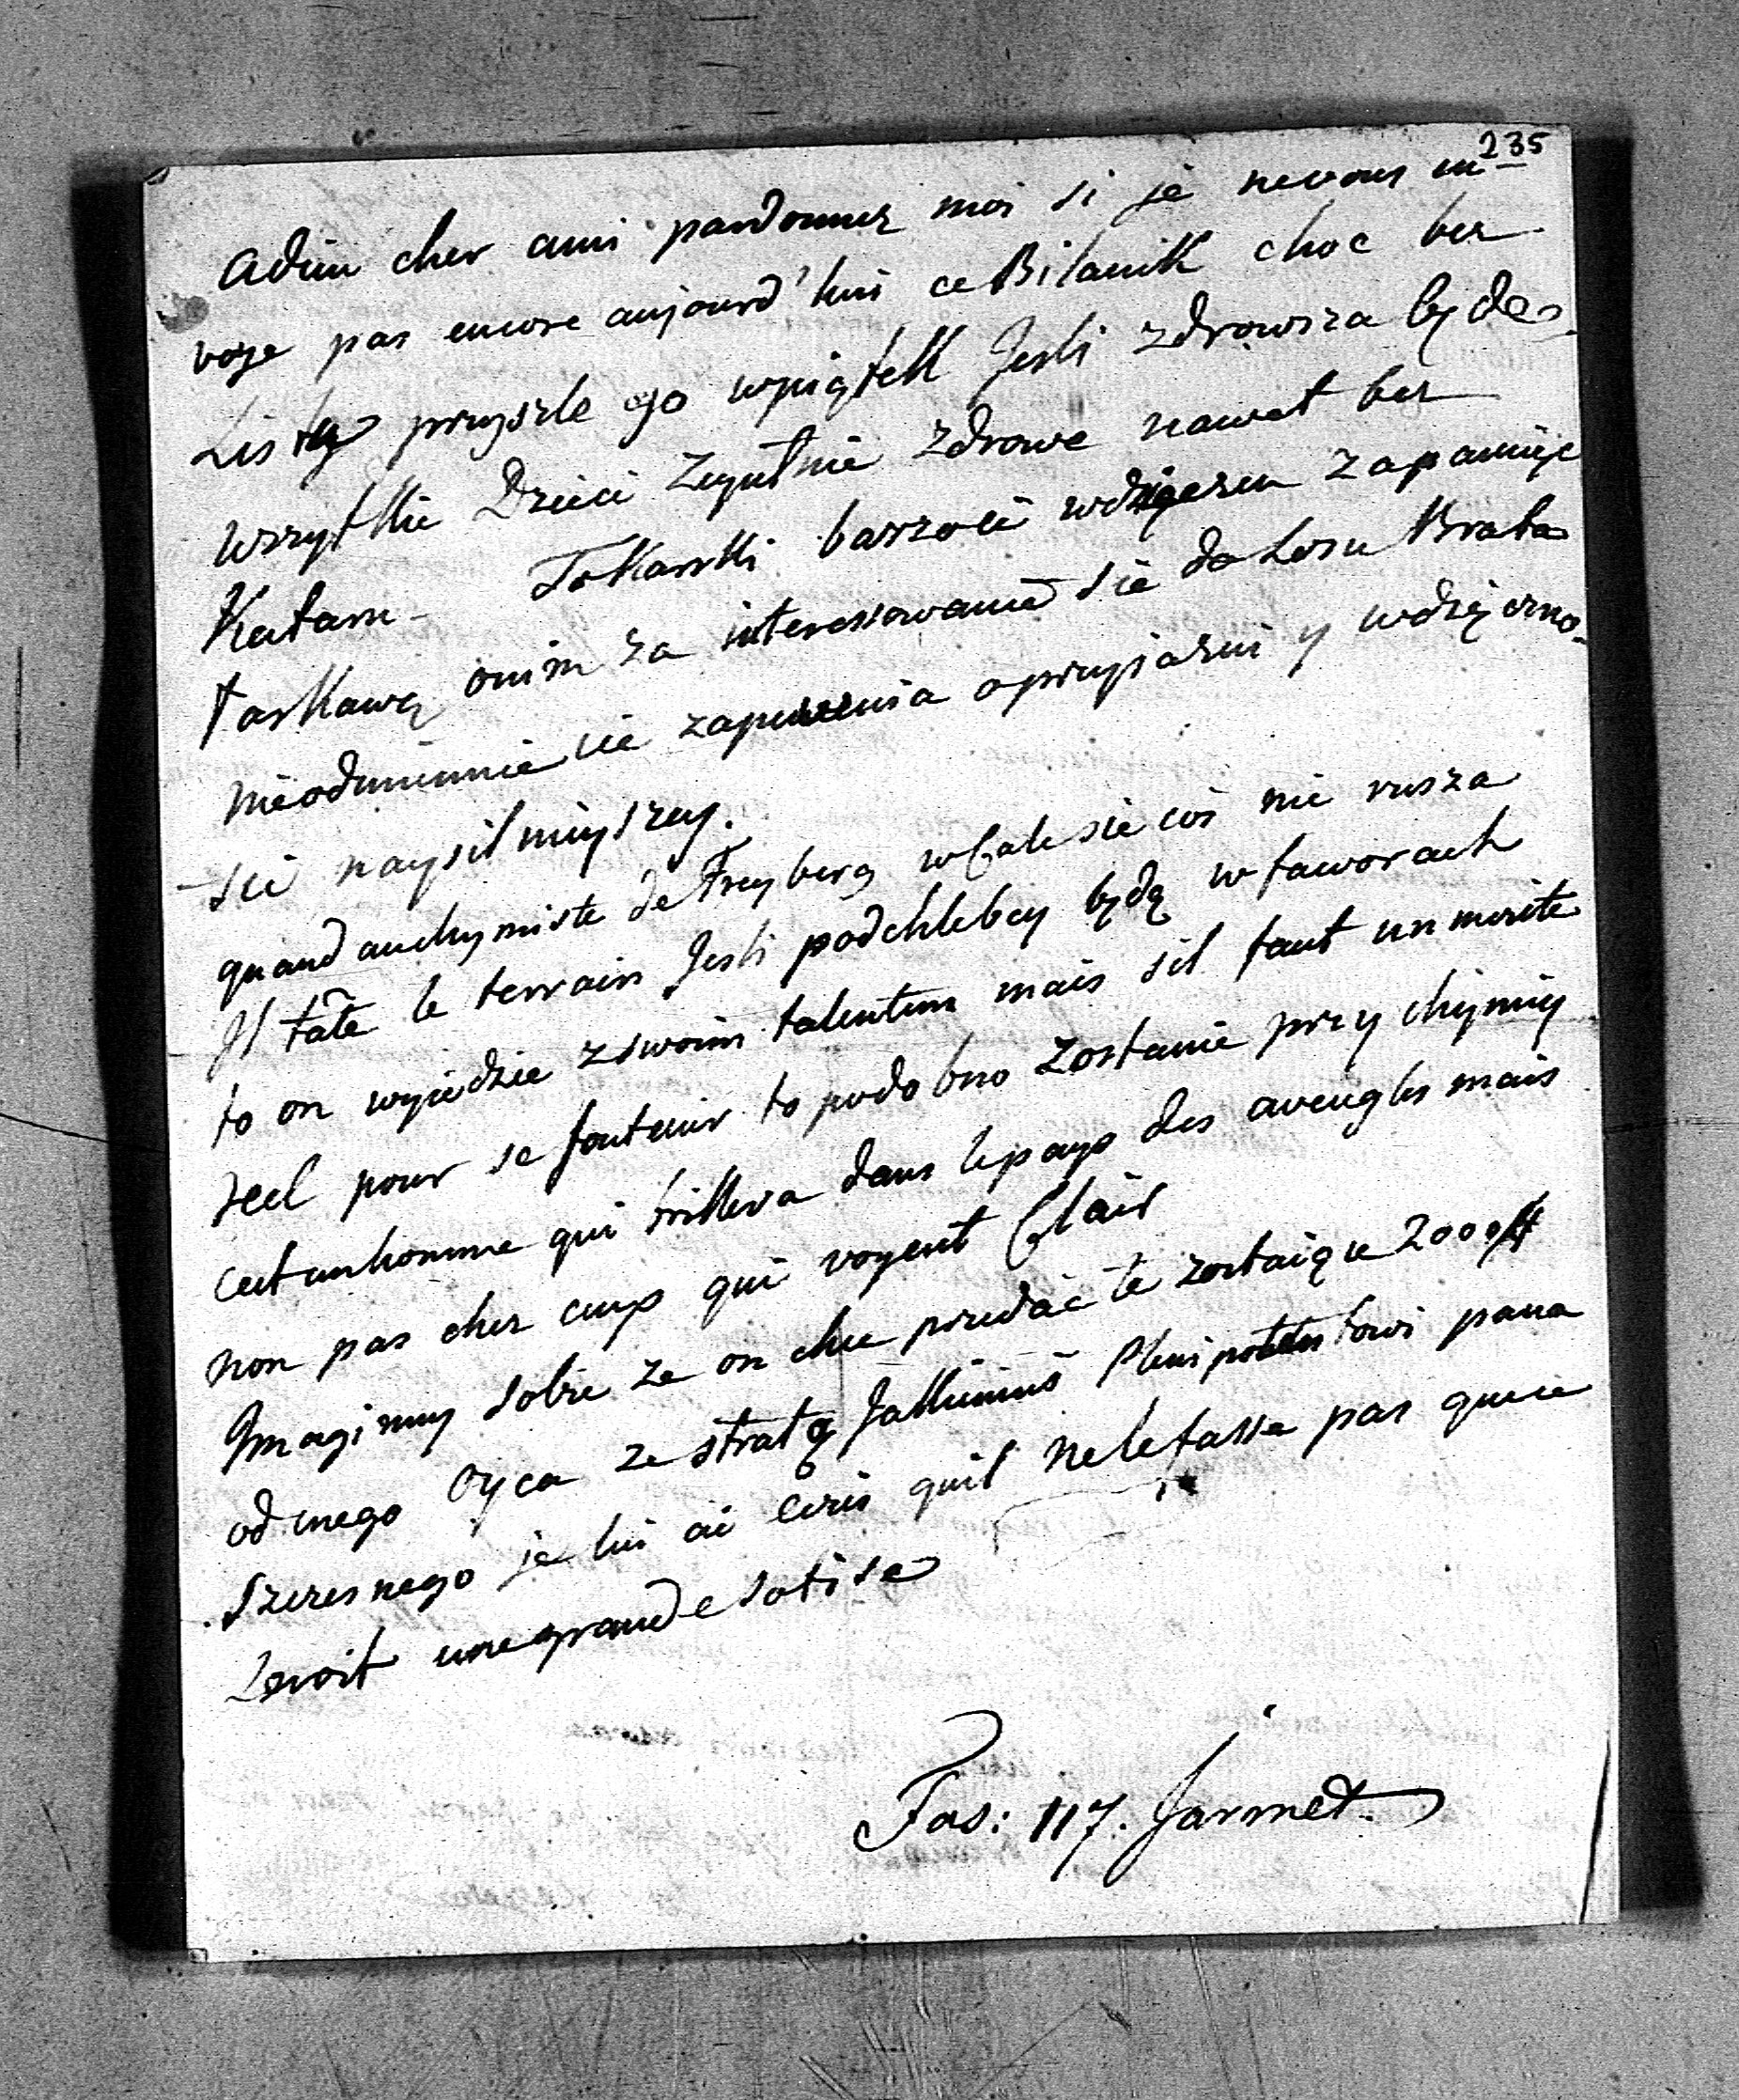 235
adieu cher ami pardonnez moi si je nevous en-
voye pas encore aujourd'hui ce Bilanik choc bez
Listy przyszle go wpiątek Jesli zdrowsza będes
wszytkie Dzieci zupełnie zdrowe nawet bez
Kataru - Tokarski barzoci wdzięczen zapamięc
łaskawą onim za interessowanie sie do Losu Brata
nieodmiennie cie zapewnia oprzyjazni y wdzięczno-
-sci naysilnieyszey.
quand auchymiste de Freyberg wCale sie cos nie rusza
Il tâte le terrain Jesli podchlebcy będą wfaworach
to on wyjedzie zswoim talentem mais sil faut un merite
reel pour se soutenir to podobno zostanie przy chymiy
cest unhomme qui brillera dans lepays des aveugles mais
non pas chez ceux qui voyent Clair
Imaginuy sobie ze on chce przedac te zostaiące 2000#
od mego Oyca ze stratą Jakkimis Plenipotentowi pana
Szczesnego je lui ai ecris quil nelefasse pas que ce
seroit unegrande sotise
Fas: 117. Jarmet.